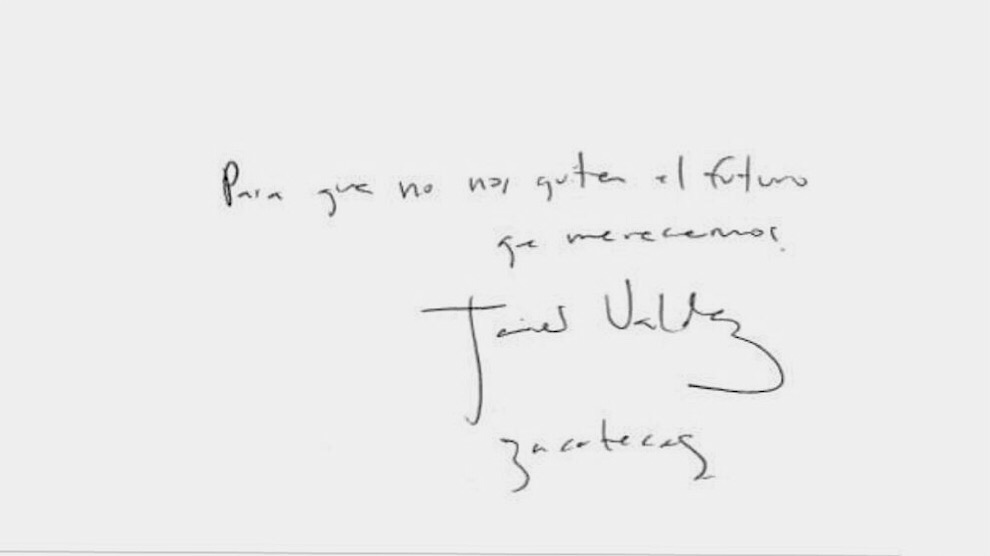 Para que no nos quiten el futuro
que merecemos.
Valdez
Zacatecas